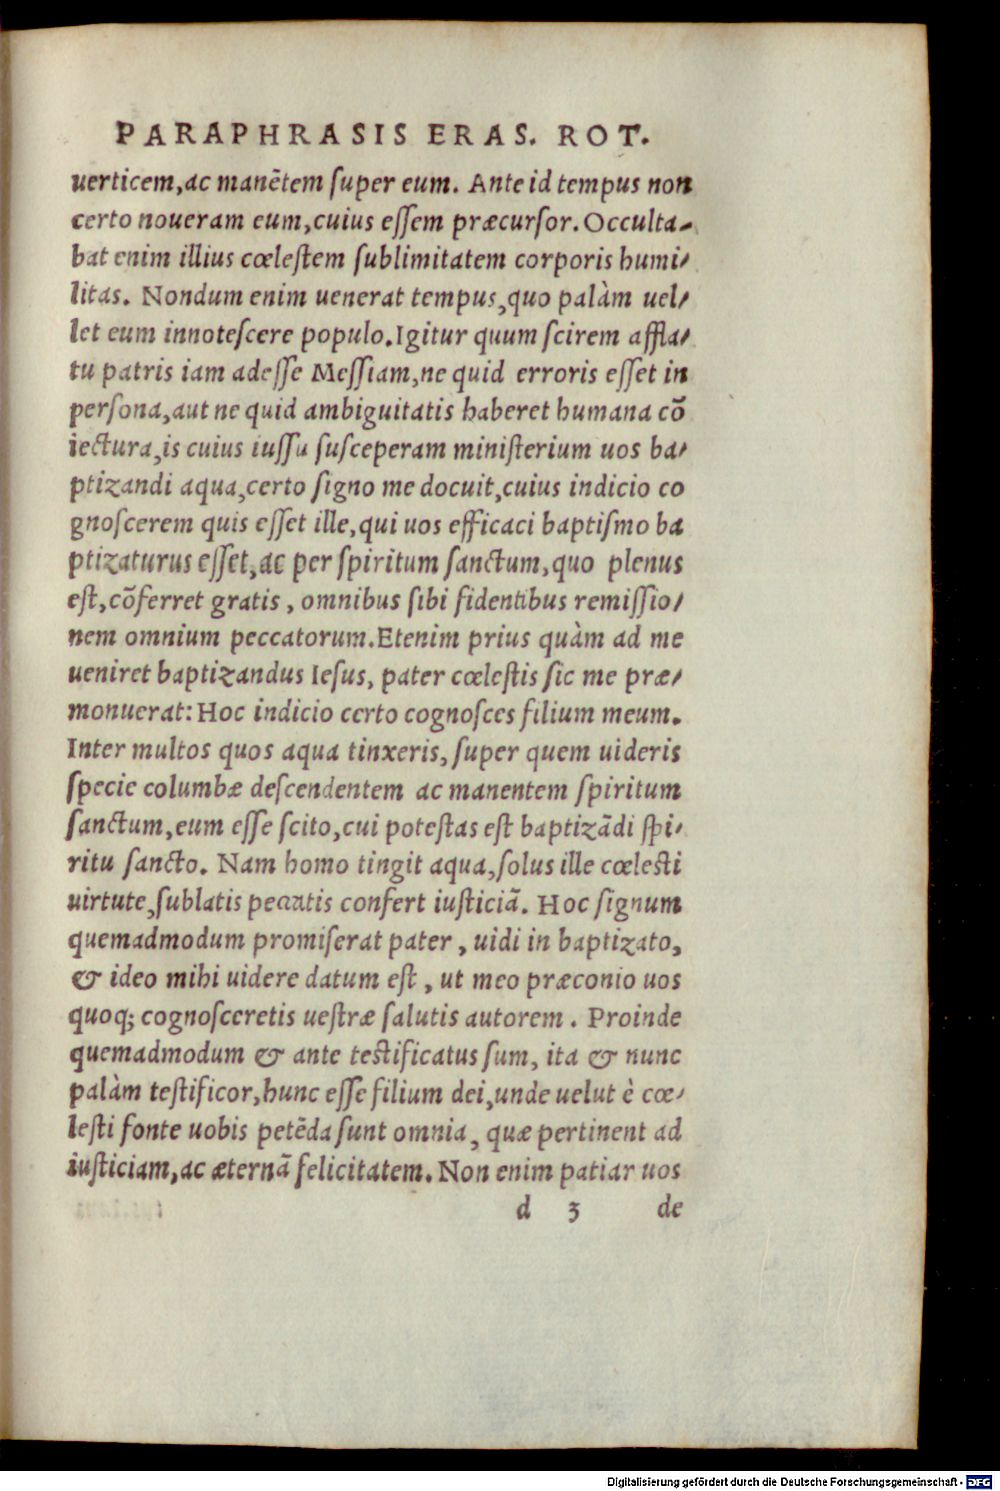 PARAPHRASIS ERAS. ROT.
uerticem,ac manētem ſuper eum. Ante id tempus non
certo noueram eum,cuius eſſem præcurſor. Occulta-
bat enim illius cœleſtem ſublimitatem corporis humi/
litas. Nondum enim uenerat tempus,quo palàm uel/
let eum innoteſcere populo.Igitur quum ſcirem affla/
tu patris iam adeſſe Meſſiam,ne quid erroris eſſet in
perſona,aut ne quid ambiguitatis haberet humana cō
iectura,is cuius iuſſu ſuſceperam miniſterium uos ba/
ptizandi aqua,certo ſigno me docuit,cuius indicio co
gnoſcerem quis eſſet ille,qui uos efficaci baptiſmo ba
ptizaturus eſſet,ac per ſpiritum ſanctum,quo plenus
eſt,cōferret gratis, omnibus ſibi fidentibus remiſſio/
nem omnium peccatorum.Etenim prius quàm ad me
ueniret baptizandus Ieſus, pater cœleſtis ſic me præ/
monuerat: Hoc indicio certo cognoſces filium meum.
Inter multos quos aqua tinxeris, ſuper quem uideris
ſpecie columbæ deſcendentem ac manentem ſpiritum
ſanctum,eum eſſe ſcito,cui poteſtas eſt baptizādi ſpi/
ritu ſancto. Nam homo tingit aqua,ſolus ille cœleſti
uirtute,ſublatis peccatis confert iuſticiā. Hoc ſignum
quemadmodum promiſerat pater, uidi in baptizato,
& ideo mihi uidere datum eſt, ut meo præconio uos
quoq; cognoſceretis ueſtræ ſalutis autorem. Proinde
quemadmodum & ante teſtificatus ſum, ita & nunc
palàm teſtificor,hunc eſſe filium dei,unde uelut è cœ/
leſti fonte uobis petēda ſunt omnia, quæ pertinent ad
iuſticiam,ac æternā felicitatem. Non enim patiar uos
d 3 de
Digitalisierung gefördert durch die Deutsche Forschungsgemeinschaft - DFG